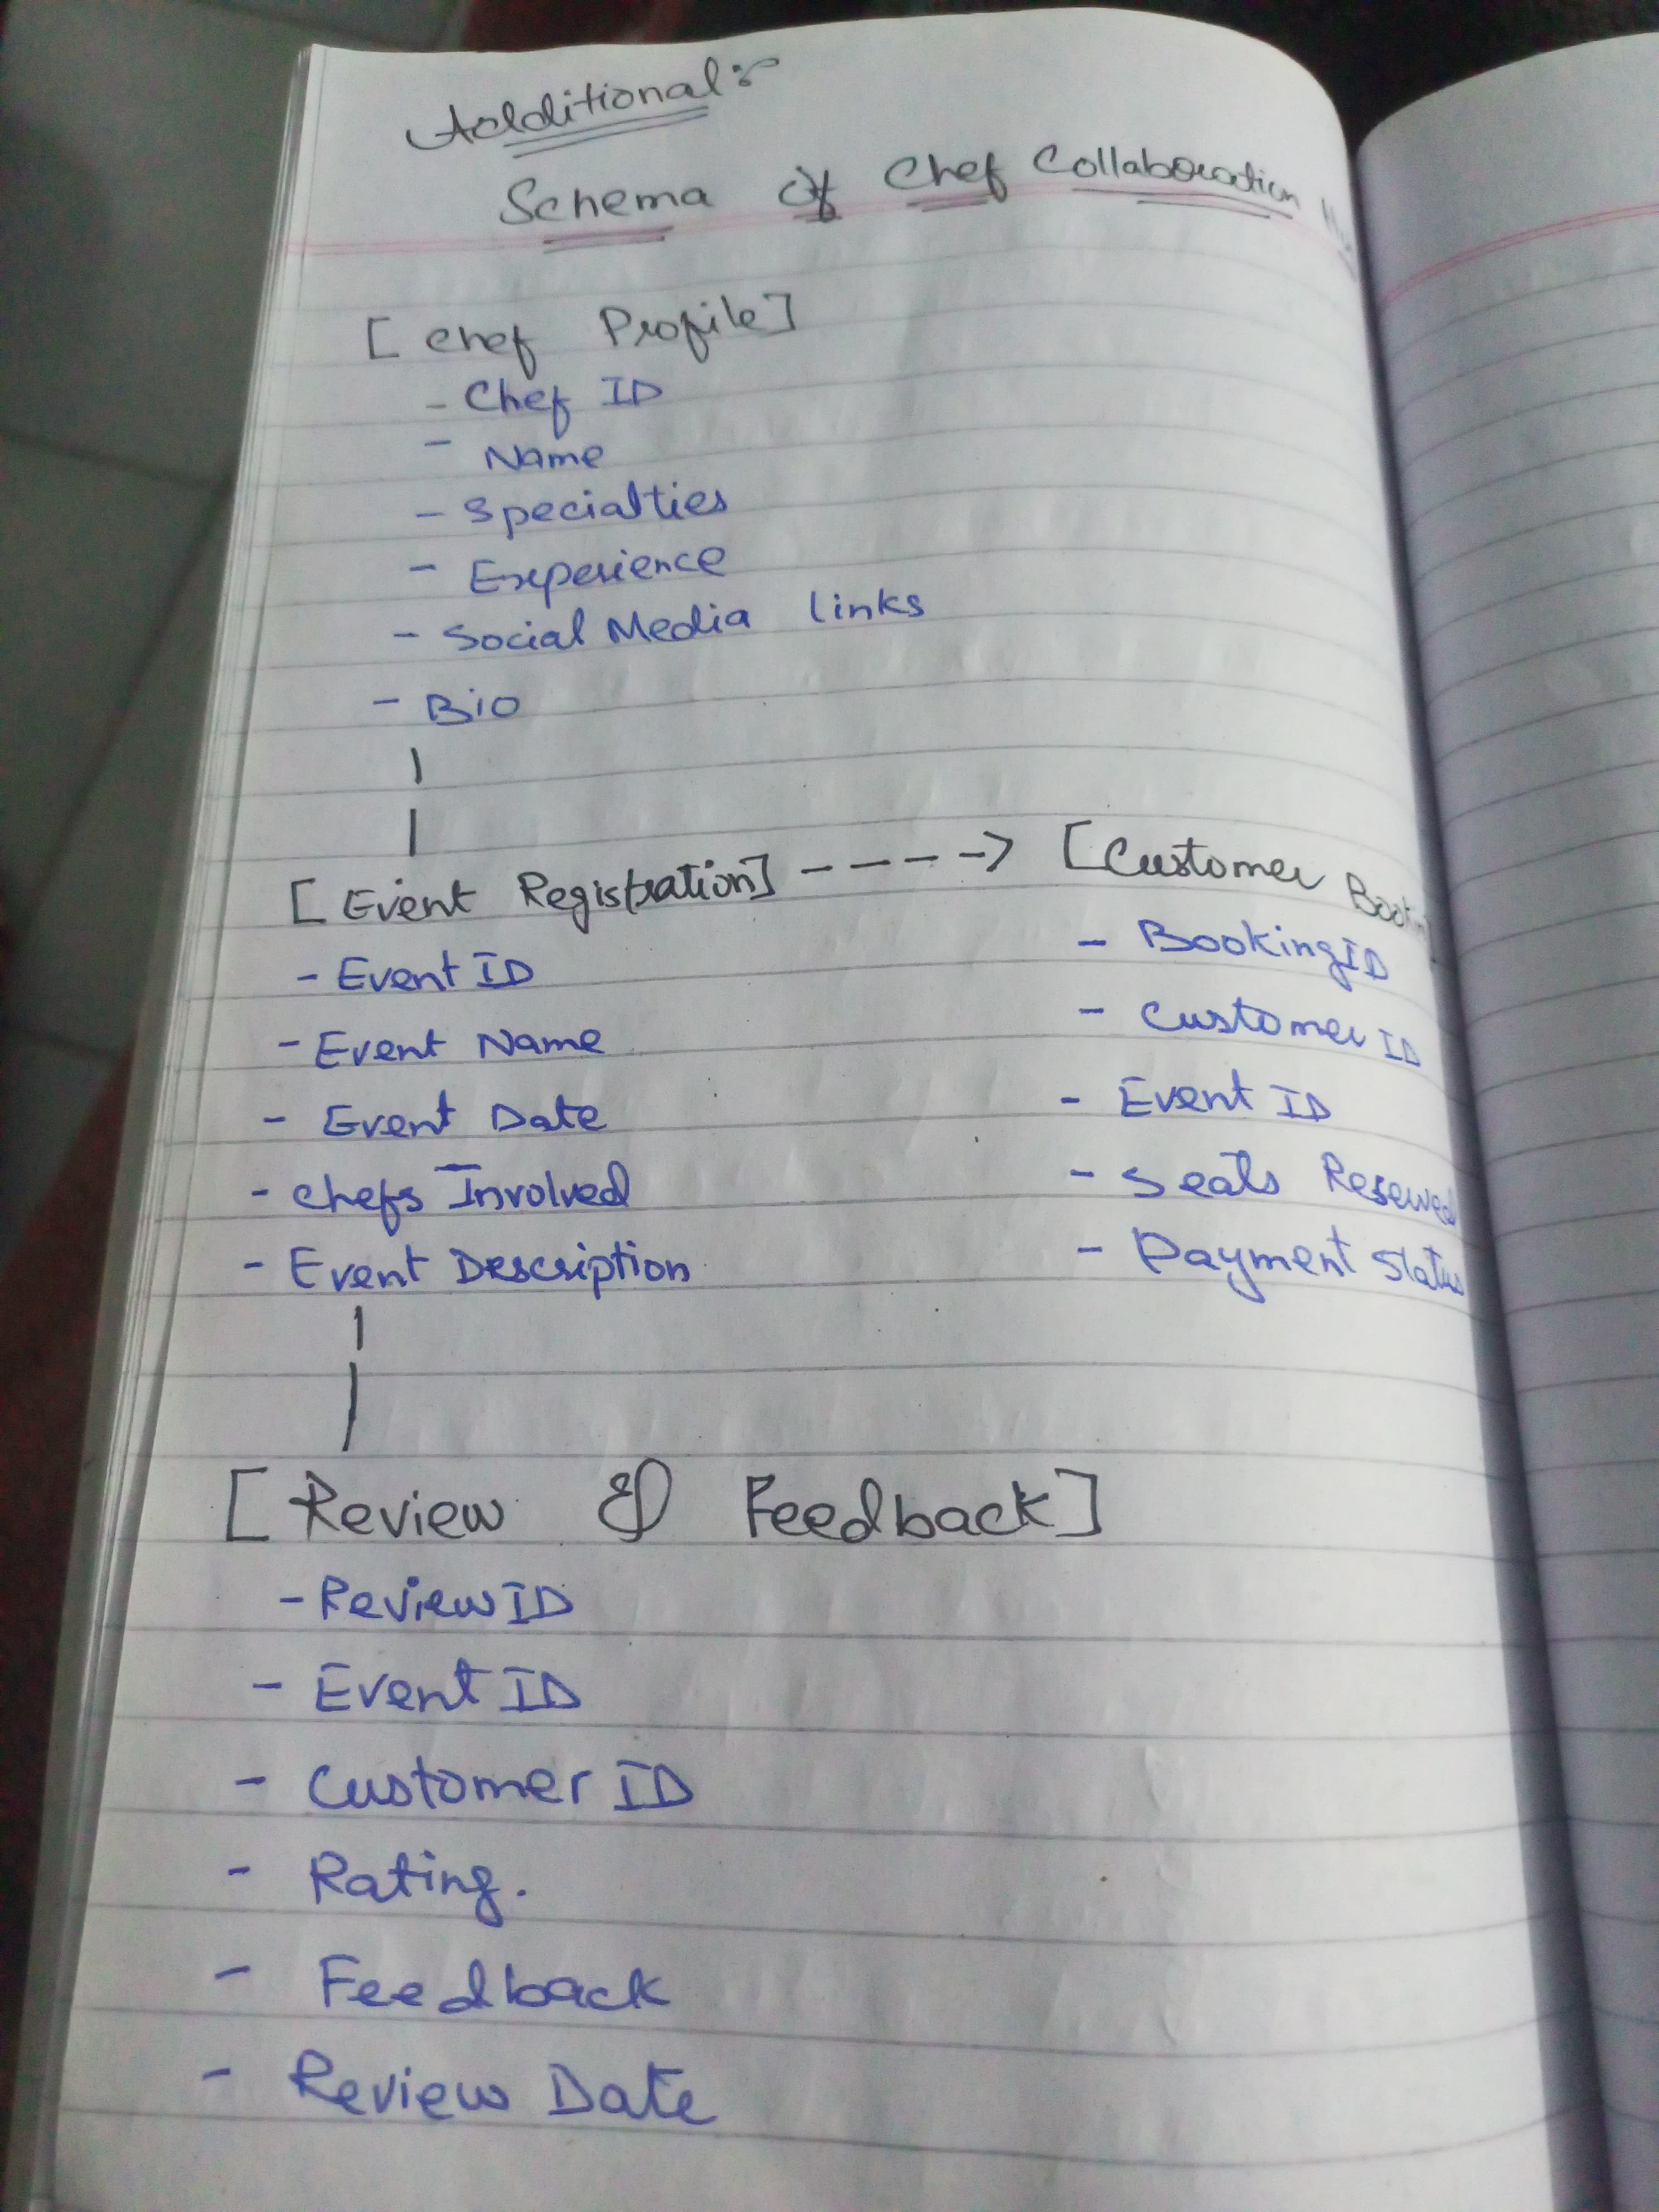 Additional :-
Schema of Chef Collaboration
[ Chef Profile ]
- Chef ID
- Name
- Specialties
- Experience
- Social Media links
- Bio
[ Event Registration ] ----> [ Customer
- Event ID
- Event Name
- Event Date
- Chefs Involved
- Event Description
- Booking ID
- Customer ID
- Event ID
- Seats Reserved
- Payment Status
[ Review & Feedback ]
- Review ID
- Event ID
- Customer ID
- Rating.
- Feedback
- Review Date